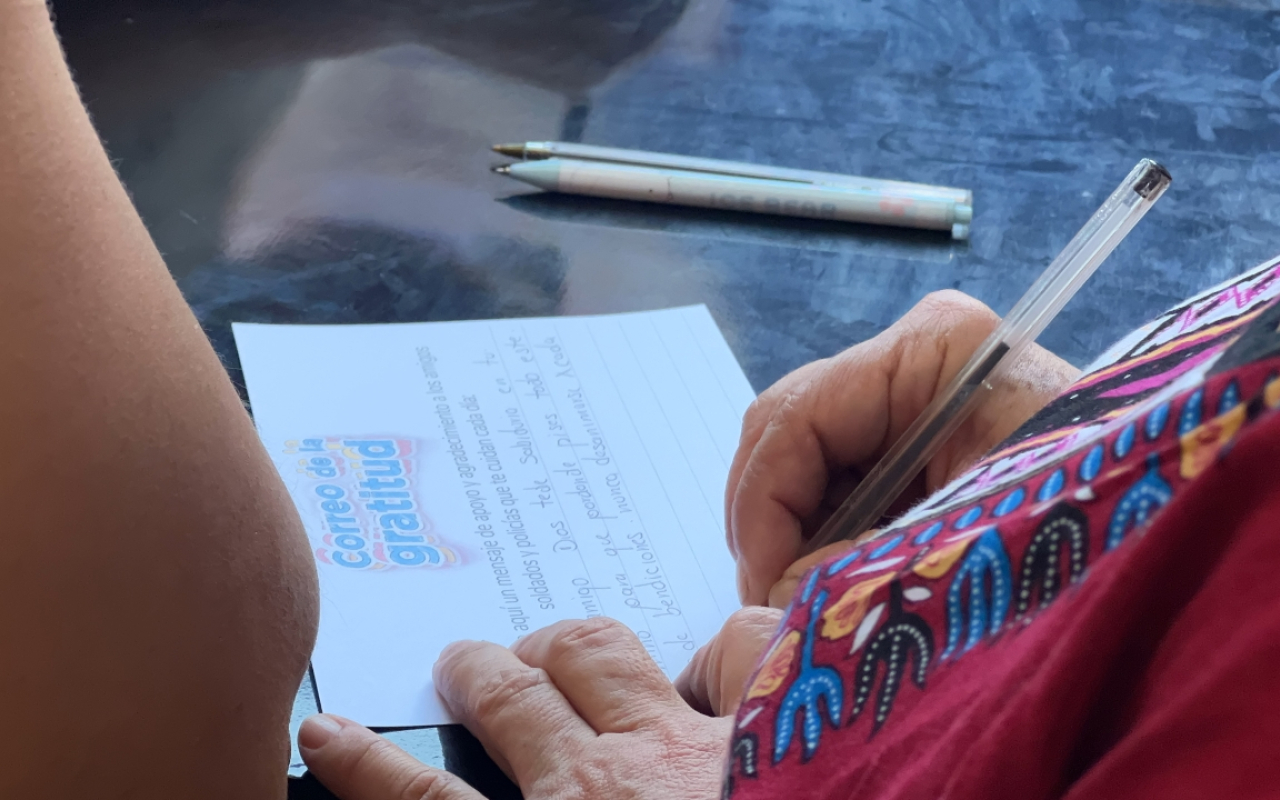 Correo de la
gratitud
aquí un mensaje de apoyo y agradecimiento a los amigos
soldados y policías que te cuidan cada día:
migo Dios tede Sabiduria en tu
para que por donde pises todo este
de bendiciones. nunca desanimarse Acada